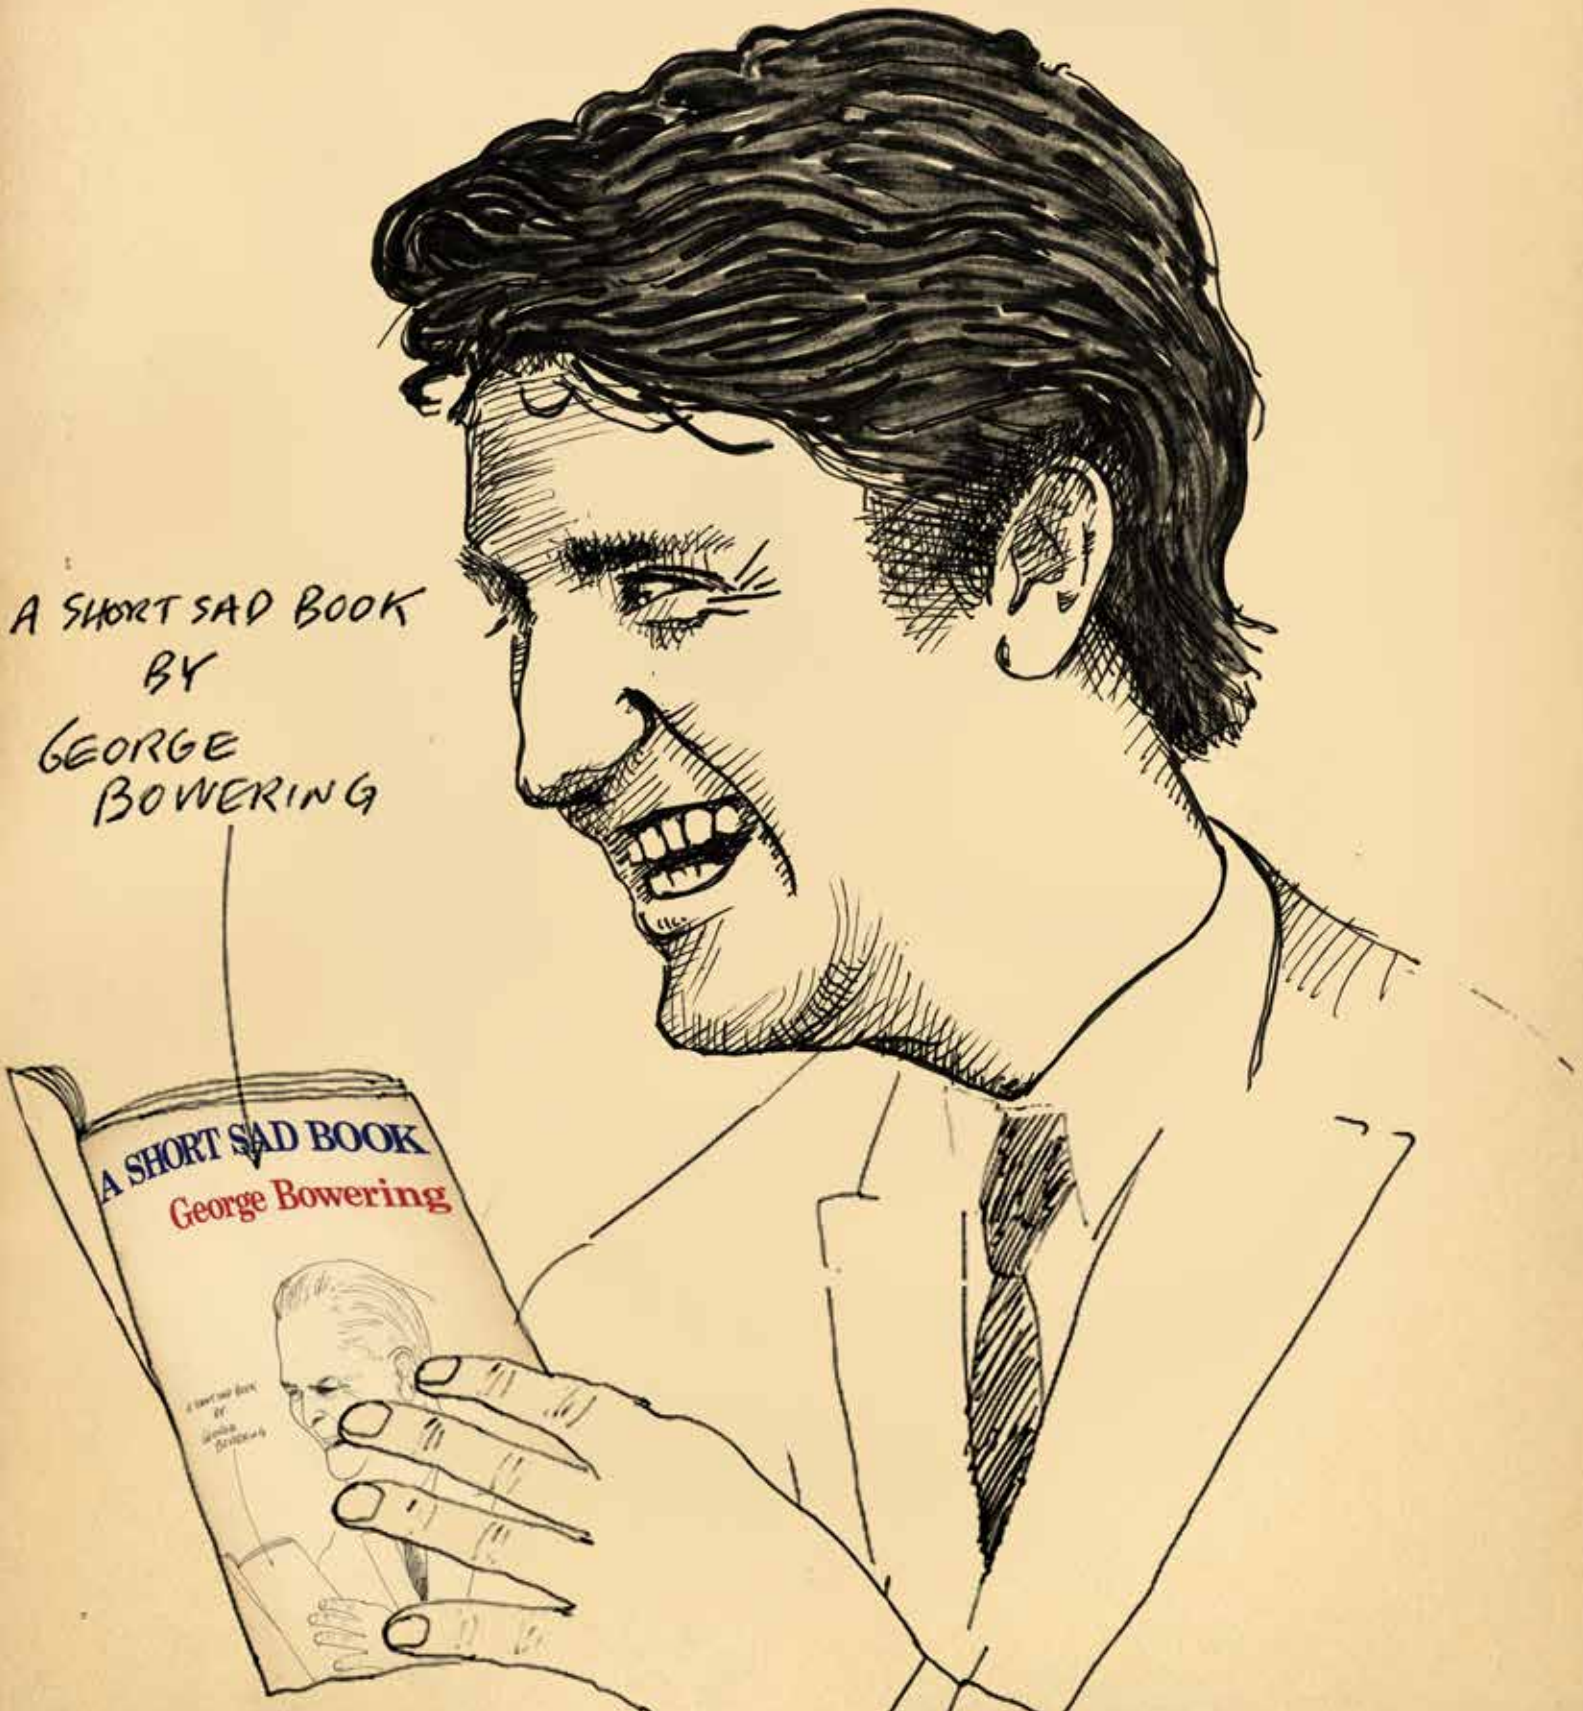 A SHORT SAD BOOK
BY
GEORGE
BOWERING
A SHORT SAD BOOK
George Bowering
A SHORT SAD BOOK
BY
GEORGE
BOWERING